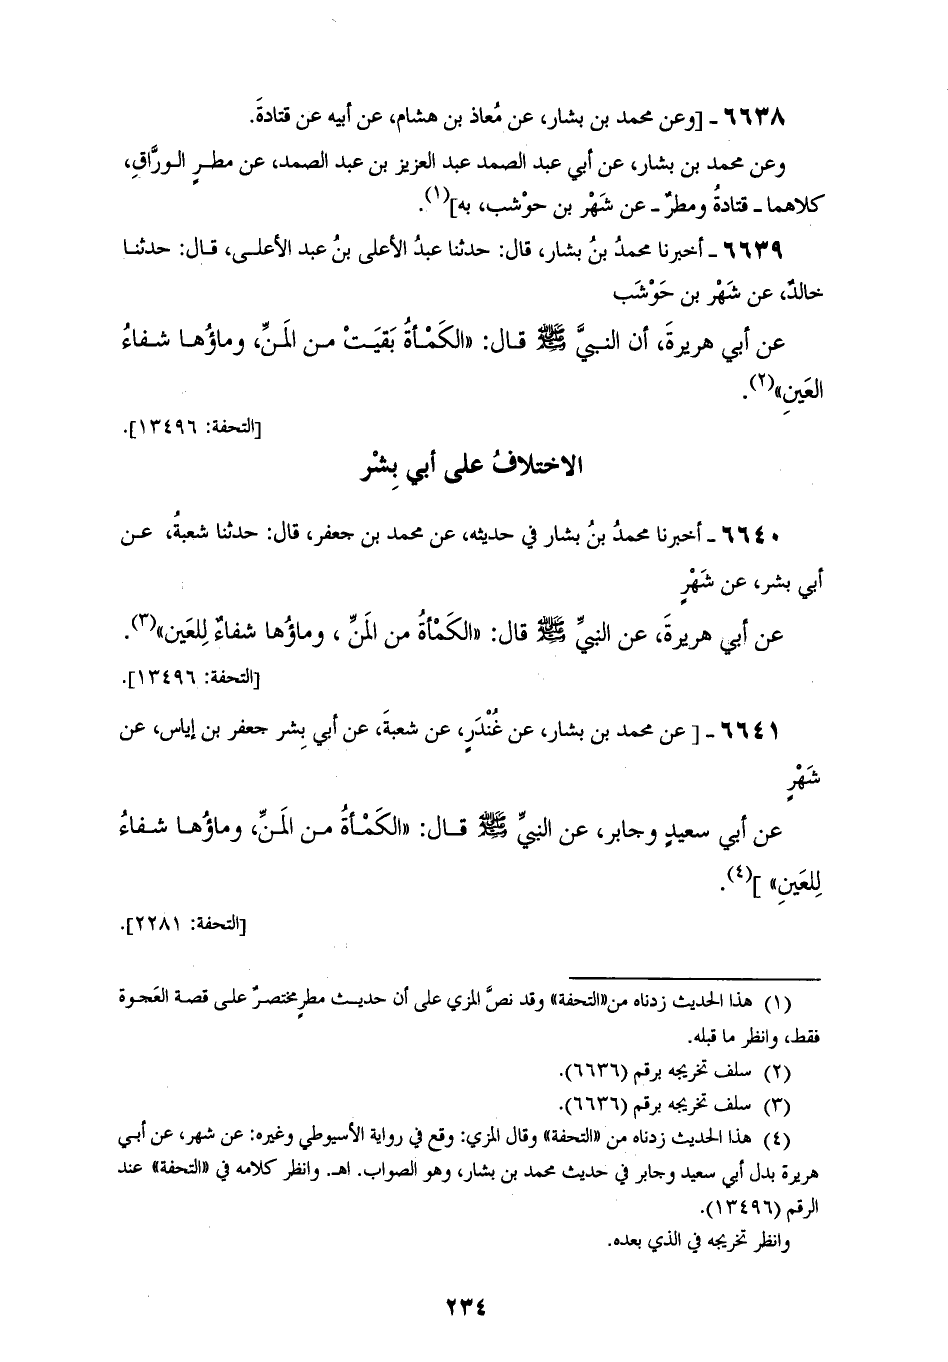 ٦٦٣٨ ـ [وعن محمد بن بشار، عن مُعاذ بن هشام، عن أبيه عن قتادةَ.
وعن محمد بن بشار، عن أبي عبد الصمد عبد العزيز بن عبد الصمد، عن مطـرٍ الـورَّاقِ،
كلاهما ـ قتادةُ ومطرٌ ـ عن شَهْر بن حوْشب، به](١).
٦٦٣٩ ـ أخبرنا محمدُ بنُ بشار، قال: حدثنا عبدُ الأعلى بنُ عبد الأعلـى، قـال: حدثنـا
خالدٌ، عن شَهْر بن حَوْشَب
عن أبي هريرةَ، أن النبـيَّ ﷺ قـال: «الكَمْـأةُ بَقيَـتْ مـن المَـنِّ، وماؤُهـا شـفاءُ
العَينِ»(٢).
[التحفة: ١٣٤٩٦].
الاختلافُ على أبي بِشْر
٦٦٤٠ ـ أخبرنا محمدُ بنُ بشار في حديثه، عن محمد بن جعفر، قال: حدثنا شعبةُ، عـن
أبي بشر، عن شَهْرٍ
عن أبي هريرةَ، عن النبيِّ ﷺ قال: «الكَمْأةُ من المَنِّ ، وماؤُها شفاءٌ لِلعَين»(٣).
[التحفة: ١٣٤٩٦].
٦٦٤١ ـ [ عن محمد بن بشار، عن غُنْدَرٍ، عن شعبةَ، عن أبي بِشر جعفر بن إياس، عن
شَهْرٍ
عن أبي سعيدٍ وجابر، عن النبيِّ ﷺ قـال: «الكَمْـأةُ مـن المَـنِّ، وماؤُهـا شـفاءُ
لِلعَينِ» ](٤).
[التحفة: ٢٢٨١].
(١) هذا الحديث زدناه من«التحفة» وقد نصَّ المزي على أن حديـث مطرٍ مختصرٌ علـى قصـة العَجوة
فقط، وانظر ما قبله.
(٢) سلف تخريجه برقم (٦٦٣٦).
(٣) سلف تخريجه برقم (٦٦٣٦).
(٤) هذا الحديث زدناه من «التحفة» وقال المزي: وقع في رواية الأسيوطي وغيره: عن شهر، عن أبـي
هريرة بدل أبي سعيد وجابر في حديث محمد بن بشار، وهو الصواب. اهـ. وانظر كلامه في «التحفة» عند
الرقم (١٣٤٩٦).
وانظر تخريجه في الذي بعده.
٢٣٤